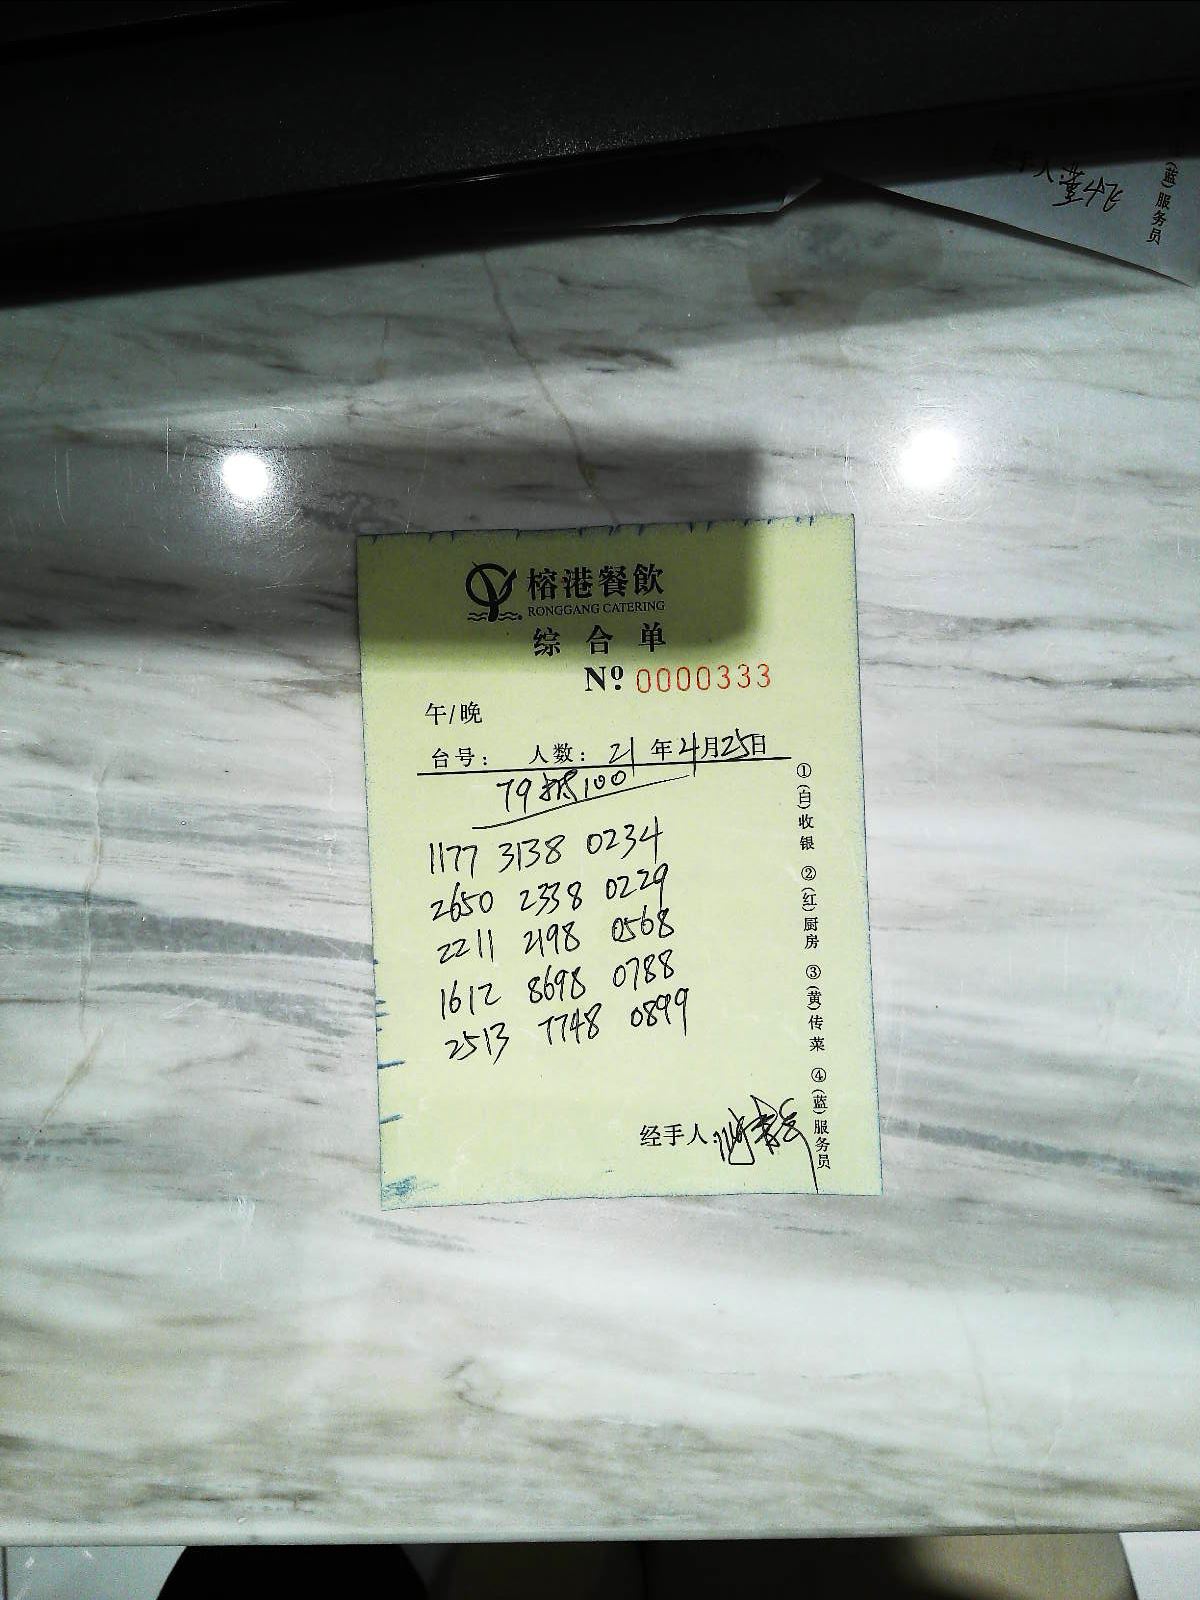 榕港餐飲
RONGGANG CATERING
综合单
Nº 0000333
午/晚
台号： 人数：21年4月25日
79抵100
1177 3138 0234
2650 2338 0229
2211 2198 0568
1612 8698 0788
2513 7748 0899
经手人:
①(白)收银 ②(红)厨房 ③(黄)传菜 ④(蓝)服务员
手人:
(蓝)服务员